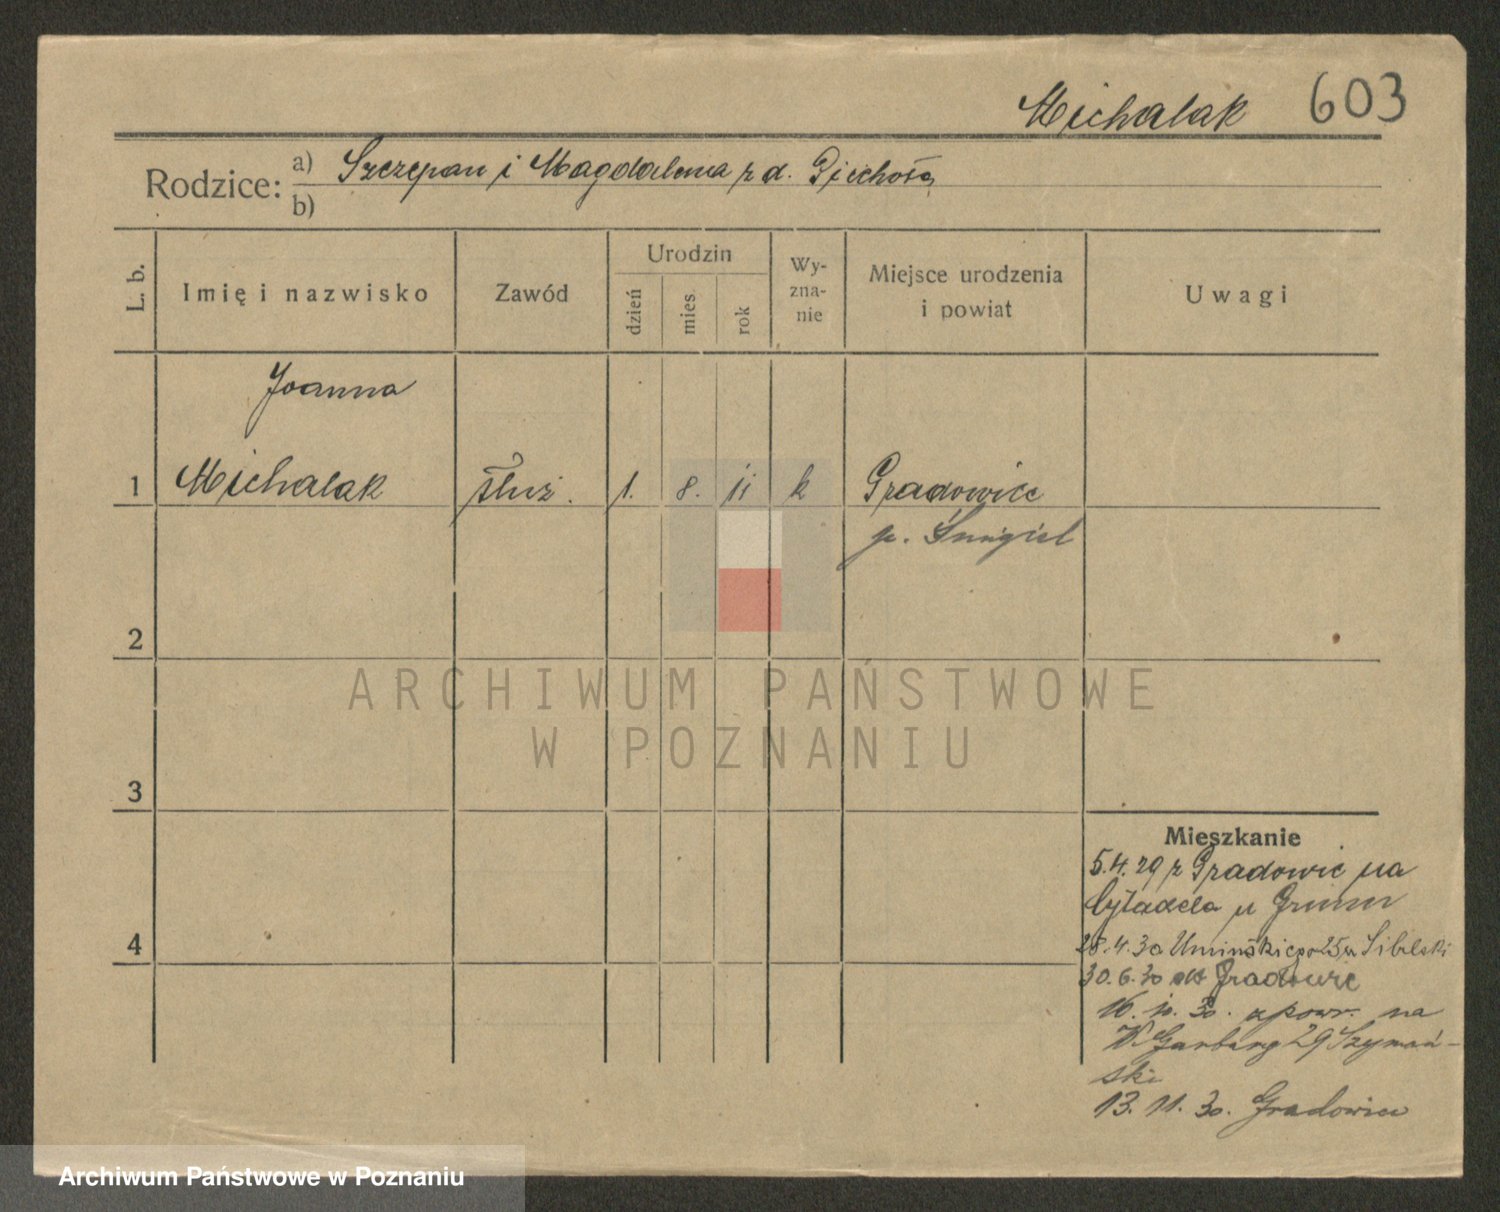 Michalak 603
Rodzice: a) Szczepan i Magdalena z d. Piechota
b)
L. b. Imię i nazwisko Zawód Urodzin dzień mies. rok Wyznanie Miejsce urodzenia i powiat Uwagi
Joanna
1 Michalak służ. 1. 8. 11 k Gradowice
p. Śmigiel
2
ARCHIWUM PAŃSTWOWE
W POZNANIU
3
Mieszkanie
5.4.29 z Gradowic na
Cytadela u Grimm
4
28.4.30 Umińskiego 25 u Sibilski
30.6.30 Gradowic
16. 10. 30. z powr. na
W. Garbary 29 Szymań-
ski
13. 11. 30. Gradowice
Archiwum Państwowe w Poznaniu